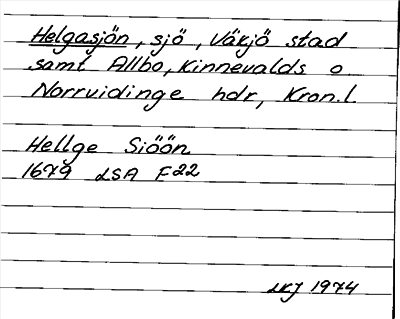 Helgasjön, sjö, Växjö stad
samt Allbo, Kinnevalds o
Norrvidinge hdr, Kron.l.
Hellge Siöön
1679 LSA F22
1974